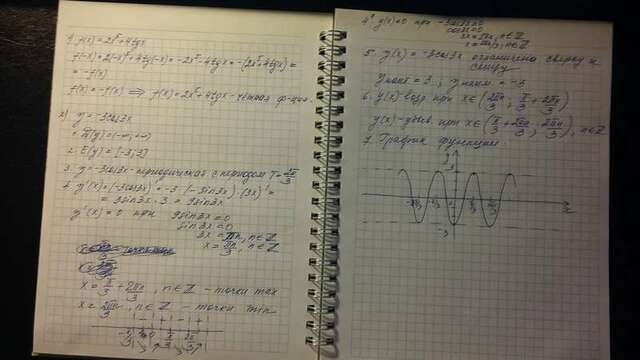 1. f(x) = 2x⁵ + 4tgx
f(-x) = 2(-x)⁵ + 4tg(-x) = -2x⁵ - 4tgx = -(2x⁵ + 4tgx) =
= -f(x)
f(x) = -f(x) ⟹ f(x) = 2x⁵ + 4tgx - нечётная ф-ция.
2) y = -3cos3x
1. D(y) = (-∞; +∞)
2. E(y) = [-3; 3]
3. y = -3cos3x - периодическая с периодом T = 2π/3
4. y'(x) = (-3cos3x)' = -3·(-3sin3x)·(3x)' =
= 3sin3x·3 = 9sin3x
y'(x) = 0 при 9sin3x = 0
sin3x = 0
3x = πn, n∈Z
x = πn/3, n∈Z
x = π/3 + 2πn/3, n∈Z - точки max
x = 2πn/3, n∈Z - точки min
y(x) = 0 при -3cos3x = 0
cos3x = 0
5. y(x) = -3cos3x ограничена сверху и
снизу
y наиб = 3; y наим = -3
6. y(x) - возр. при x∈(2πn/3; π/3 + 2πn/3)
y(x) - убыв. при x∈(π/3 + 2πn/3; 2πn/3), n∈Z
7. График функции
y
3
-3
x